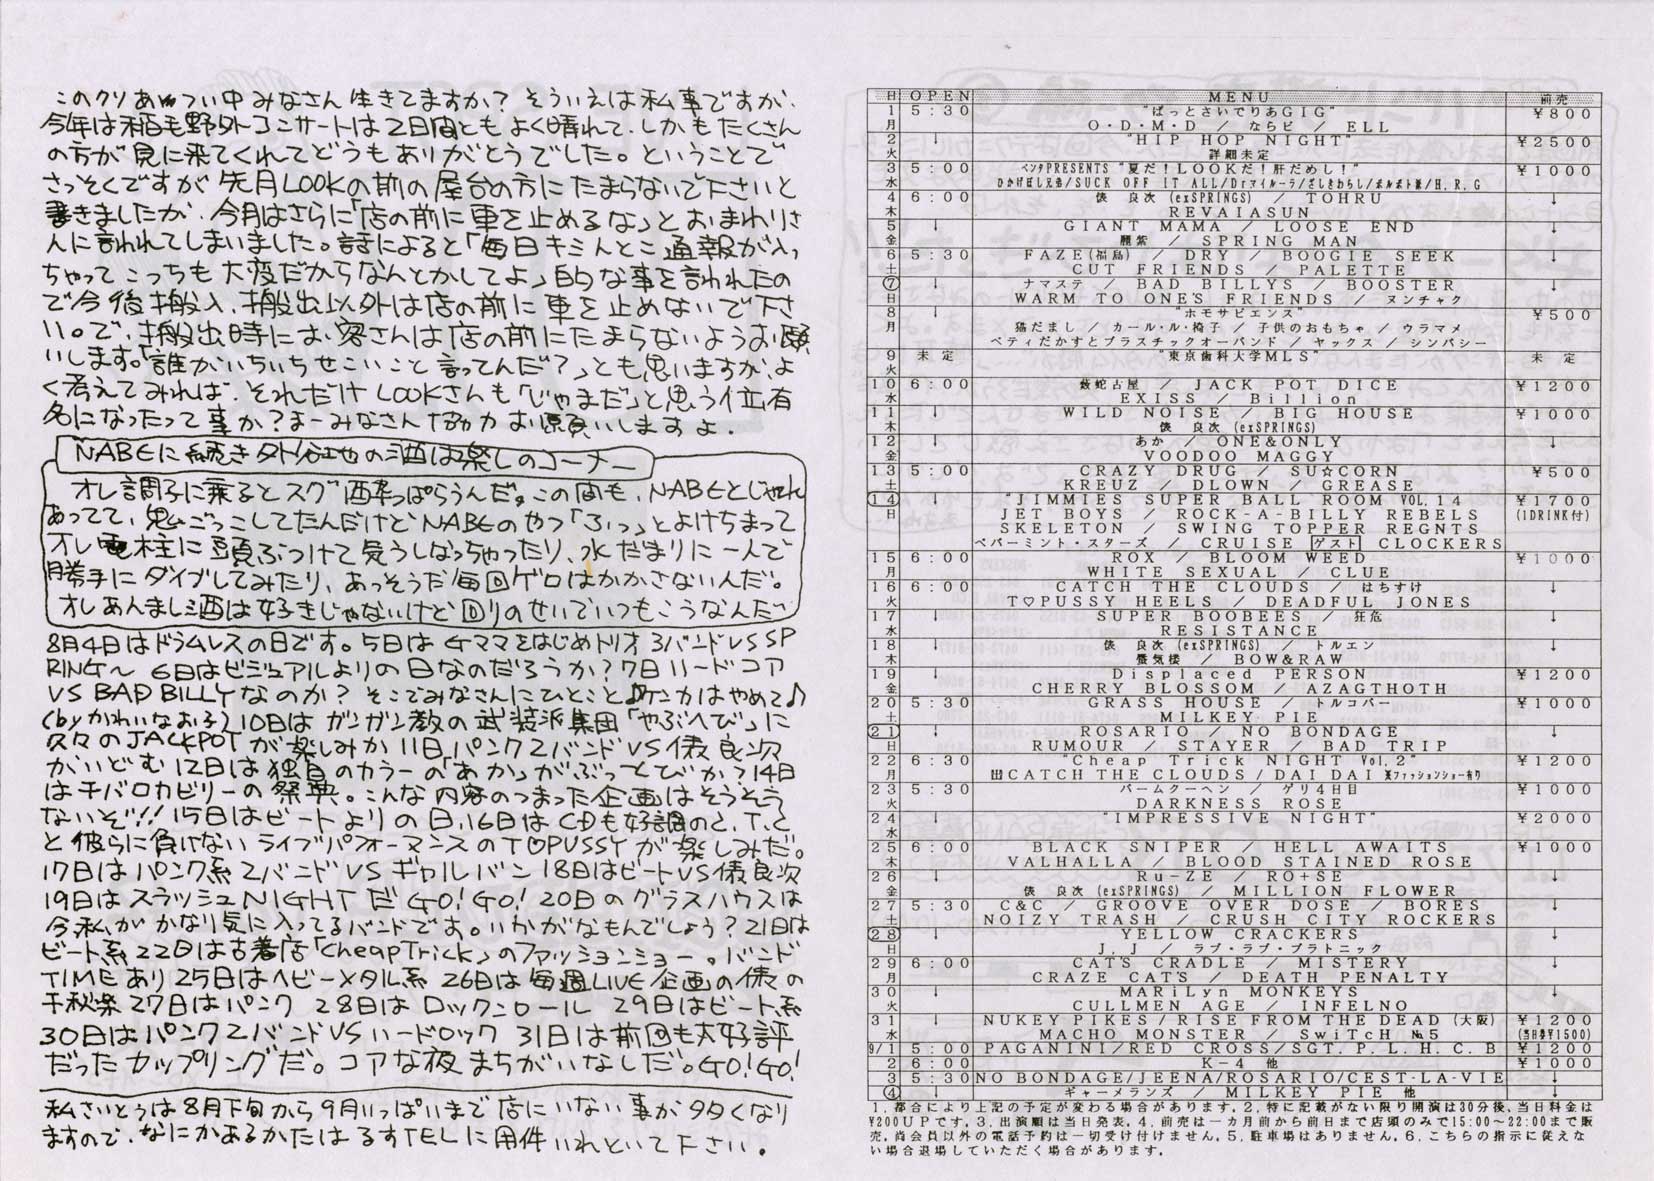 このクソあwつい中みなさん生きてますか？そういえば私事ですが、
今年は稲毛野外コンサートは2日間ともよく晴れて、しかもたくさん
の方が見に来てくれてどうもありがとうでした。ということで
さっそくですが先月LOOKの前の屋台の方にたまらないで下さいと
書きましたが、今月はさらに「店の前に車を止めるな」とおまわりさ
んに言われてしまいました。話によると「毎日キミんとこ通報が入っ
ちゃってこっちも大変だからなんとかしてよ」的な事を言われたの
で今後搬入、搬出以外は店の前に車を止めないで下さ
い。で、搬出時にお客さんは店の前にたまらないようお願
いします。「誰がいちいちせこいこと言ってんだ？」とも思いますが、よ
く考えてみれば、それだけLOOKさんも「じゃまだ」と思う位有
名になったって事か？まーみなさん協力お願いしますよ。
NABEに続き外谷地の酒は楽しのコーナー
オレ調子に乗るとスグ酔っぱらうんだ。この間も、NABEとじゃれ
あってて、鬼ごっこしてたんだけどNABEのやつ「ふっ」とよけちまって
オレ電柱に頭ぶつけて気うしなっちゃったり、水だまりに一人で
勝手にダイブしてみたり、あっそうだ毎回ゲロはかかさないんだ。
オレあんまし酒は好きじゃないけど回りのせいでいつもこうなんだ
8月4日はドラムレスの日です。5日はGママをはじめトリオ3バンドVSSP
RING〜 6日はビジュアルよりの日なのだろうか？7日ハードコア
VS BAD BILLYなのか？そこでみなさんにひとこと♪ケンカはやめて♪
(byかわいなおこ) 10日はガンガン教の武装派集団「やぶへび」に
久々のJACKPOTが楽しみか 11日パンク2バンドVS俵良次
がいどむ 12日は独自のカラーの「あか」がぶっとびか？14日
は千バロカビリーの祭典。こんな内容のつまった企画はそうそう
ないぞ!! 15日はビートよりの日、16日はCDも好調のC.T.C
と彼らに負けないライブパフォーマンスのT♡PUSSYが楽しみだ。
17日はパンク系2バンドVSギャルバン 18日はビートVS俵良次
19日はスラッシュNIGHTだGO!GO! 20日のグラスハウスは
今私がかなり気に入ってるバンドです。いかがなもんでしょう？21日は
ビート系 22日は古着店「CheapTrick」のファッションショー。バンド
TIMEあり 25日はヘビーメタル系 26日は毎週LIVE企画の俵の
千秋楽 27日はパンク 28日はロックンロール 29日はビート系
30日はパンク2バンドVSハードロック 31日は前回も大好評
だったカップリングだ。コアな夜まちがいなしだ。GO!GO!
私さいとうは8月下旬から9月いっぱいまで店にいない事が多くなり
ますので、なにかあるかたはるすTELに用件いれといて下さい。
日 OPEN MENU 前売
1 月 5:30 "ばっとさいでりあGIG" ¥800
O・D・M・D ／ ならビ ／ ELL
2 火 ↓ "HIP HOP NIGHT" ¥2500
詳細未定
3 水 5:00 ベンチPRESENTS "夏だ！LOOKだ！肝だめし！" ¥1000
ひかげぼし兄弟/SUCK OFF IT ALL/Drマイルーラ/ざしきわらし/ポルポト派/H.R.G
4 木 6:00 俵 良次 (exSPRINGS) ／ TOHRU ↓
REVAIASUN
5 金 ↓ GIANT MAMA ／ LOOSE END ↓
麗紫 ／ SPRING MAN
6 土 5:30 FAZE(福島) ／ DRY ／ BOOGIE SEEK ↓
CUT FRIENDS ／ PALETTE
⑦ 日 ↓ ナマステ ／ BAD BILLYS ／ BOOSTER ↓
WARM TO ONE'S FRIENDS ／ ヌンチャク
8 月 ↓ "ホモサピエンス" ¥500
猫だまし ／ カール・ル・椅子 ／ 子供のおもちゃ ／ ウラマメ
ベティだかすとプラスチックオーバンド ／ ヤックス ／ シンパシー
9 火 未定 "東京歯科大学MLS" 未定
10 水 6:00 薮蛇古屋 ／ JACK POT DICE ¥1200
EXISS ／ Billion
11 木 ↓ WILD NOISE ／ BIG HOUSE ¥1000
俵 良次 (exSPRINGS)
12 金 ↓ あか ／ ONE&ONLY ↓
VOODOO MAGGY
13 土 5:00 CRAZY DRUG ／ SU☆CORN ¥500
KREUZ ／ DLOWN ／ GREASE
⑭ 日 ↓ "JIMMIES SUPER BALL ROOM VOL.14 ¥1700
JET BOYS ／ ROCK-A-BILLY REBELS (1DRINK付)
SKELETON ／ SWING TOPPER REGNTS
ペパーミント・スターズ ／ CRUISE ゲスト CLOCKERS
15 月 6:00 ROX ／ BLOOM WEED ¥1000
WHITE SEXUAL ／ CLUE
16 火 6:00 CATCH THE CLOUDS ／ はちすけ ↓
T♡PUSSY HEELS ／ DEADFUL JONES
17 水 ↓ SUPER BOOBEES ／ 狂危 ↓
RESISTANCE
18 木 ↓ 俵 良次 (exSPRINGS) ／ トルエン ↓
蜃気楼 ／ BOW&RAW
19 金 ↓ Displaced PERSON ¥1200
CHERRY BLOSSOM ／ AZAGTHOTH
20 土 5:30 GRASS HOUSE ／ トルコバー ¥1000
MILKEY PIE
㉑ 日 ↓ ROSARIO ／ NO BONDAGE ↓
RUMOUR ／ STAYER ／ BAD TRIP
22 月 6:30 "Cheap Trick NIGHT Vol.2" ¥1200
出CATCH THE CLOUDS/DAI DAI ※ファッションショー有り
23 火 5:30 バームクーヘン ／ ゲリ4日目 ¥1000
DARKNESS ROSE
24 水 ↓ "IMPRESSIVE NIGHT" ¥2000
25 木 6:00 BLACK SNIPER ／ HELL AWAITS ¥1000
VALHALLA ／ BLOOD STAINED ROSE
26 金 ↓ Ru-ZE ／ RO+SE ↓
俵 良次 (exSPRINGS) ／ MILLION FLOWER
27 土 5:30 C&C ／ GROOVE OVER DOSE ／ BORES ↓
NOIZY TRASH ／ CRUSH CITY ROCKERS
㉘ 日 ↓ YELLOW CRACKERS ↓
J.J ／ ラブ・ラブ・プラトニック
29 月 6:00 CAT'S CRADLE ／ MISTERY ↓
CRAZE CAT'S ／ DEATH PENALTY
30 火 ↓ MARiLyn MONKEYS ↓
CULLMEN AGE ／ INFELNO
31 水 ↓ NUKEY PIKES/RISE FROM THE DEAD (大阪) ¥1200
MACHO MONSTER ／ SwiTcH №5 (当日券¥1500)
9/1 5:00 PAGANINI/RED CROSS/SGT.P.L.H.C.B ¥1200
2 6:00 K-4 他 ¥1000
3 5:30 NO BONDAGE/JEENA/ROSARIO/CEST-LA-VIE ↓
④ ↓ ギャーメランズ ／ MILKEY PIE 他 ↓
1．都合により上記の予定が変わる場合があります。2．特に記載がない限り開演は30分後、当日料金は
¥200UPです。3．出演順は当日発表。4．前売は一カ月前から前日まで店頭のみで15:00〜22:00まで販
売。尚会員以外の電話予約は一切受け付けません。5．駐車場はありません。6．こちらの指示に従えな
い場合退場していただく場合があります。